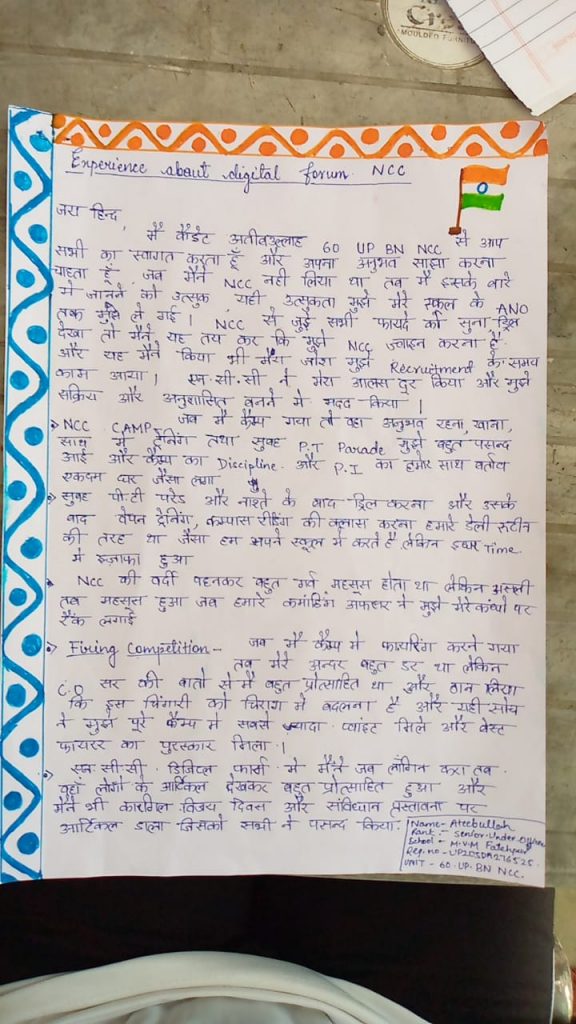 MOULDED FURNIT
Experience about digital forum NCC
जय हिन्द
मै कैडेट अतीबउल्लाह 60 UP BN NCC से आप
सभी का स्वागत करता हूँ और अपना अनुभव साझा करना
चाहता हूँ जब मैंने NCC नही लिया था तब मै इसके बारे
मे जानने को उत्सुक यही उत्सुकता मुझे मेरे स्कूल के ANO
तक मुझे ले गई। NCC से जुड़े सभी फायदे को सुना ड्रिल
देखा तो मैंने यह तय कर कि मुझे NCC ज्वाइन करना है
और यह मैंने किया भी मेरा जोश मुझे Recruitment के समय
काम आया। एन.सी.सी ने मेरा आलस दूर किया और मुझे
सक्रिय और अनुशासित बनने मे मदद किया।
NCC CAMP जब मै कैम्प गया तो वहा अनुभव रहना, खाना,
साथ मे ट्रेनिंग तथा सुबह P.T Parade मुझे बहुत पसन्द
आई और कैम्प का Discipline. और P.I का हमारे साथ बर्ताव
एकदम घर जैसा लगा
सुबह पी.टी परेड और नाश्ते के बाद ड्रिल करना और उसके
बाद वेपन ट्रेनिंग, कम्पास रीडिंग की क्लास करना हमारे डेली रूटीन
की तरह था जैसा हम अपने स्कूल मे करते है लेकिन इधर Time
मे इज़ाफा हुआ
NCC की वर्दी पहनकर बहुत गर्व महसूस होता था लेकिन असली
तब महसूस हुआ जब हमारे कमांडिंग अफसर ने मुझे मेरे कंधो पर
रैंक लगाई
Firing Competition - जब मै कैम्प मे फायरिंग करने गया
तब मेरे अन्दर बहुत डर था लेकिन
C.O सर की बातो से मै बहुत प्रोत्साहित था और ठान लिया
कि इस चिंगारी को चिराग मे बदलना है और यही सोच
ने मुझे पूरे कैम्प मे सबसे ज्यादा प्वांइट मिले और बेस्ट
फायरर का पुरस्कार मिला।
एन.सी.सी. डिजिटल फार्म मे मैंने जब लॉगिन करा तब
वहाँ लोगो के आर्टिकल देखकर बहुत प्रोत्साहित हुआ और
मैंने भी कारगिल विजय दिवस और संविधान प्रस्तावना पर
आर्टिकल डाला जिसको सभी ने पसन्द किया।
Name - Ateebullah
Rank :- Senior Under Officer
School - M.V.M Fatehpur
UNIT - 60 UP. BN NCC.